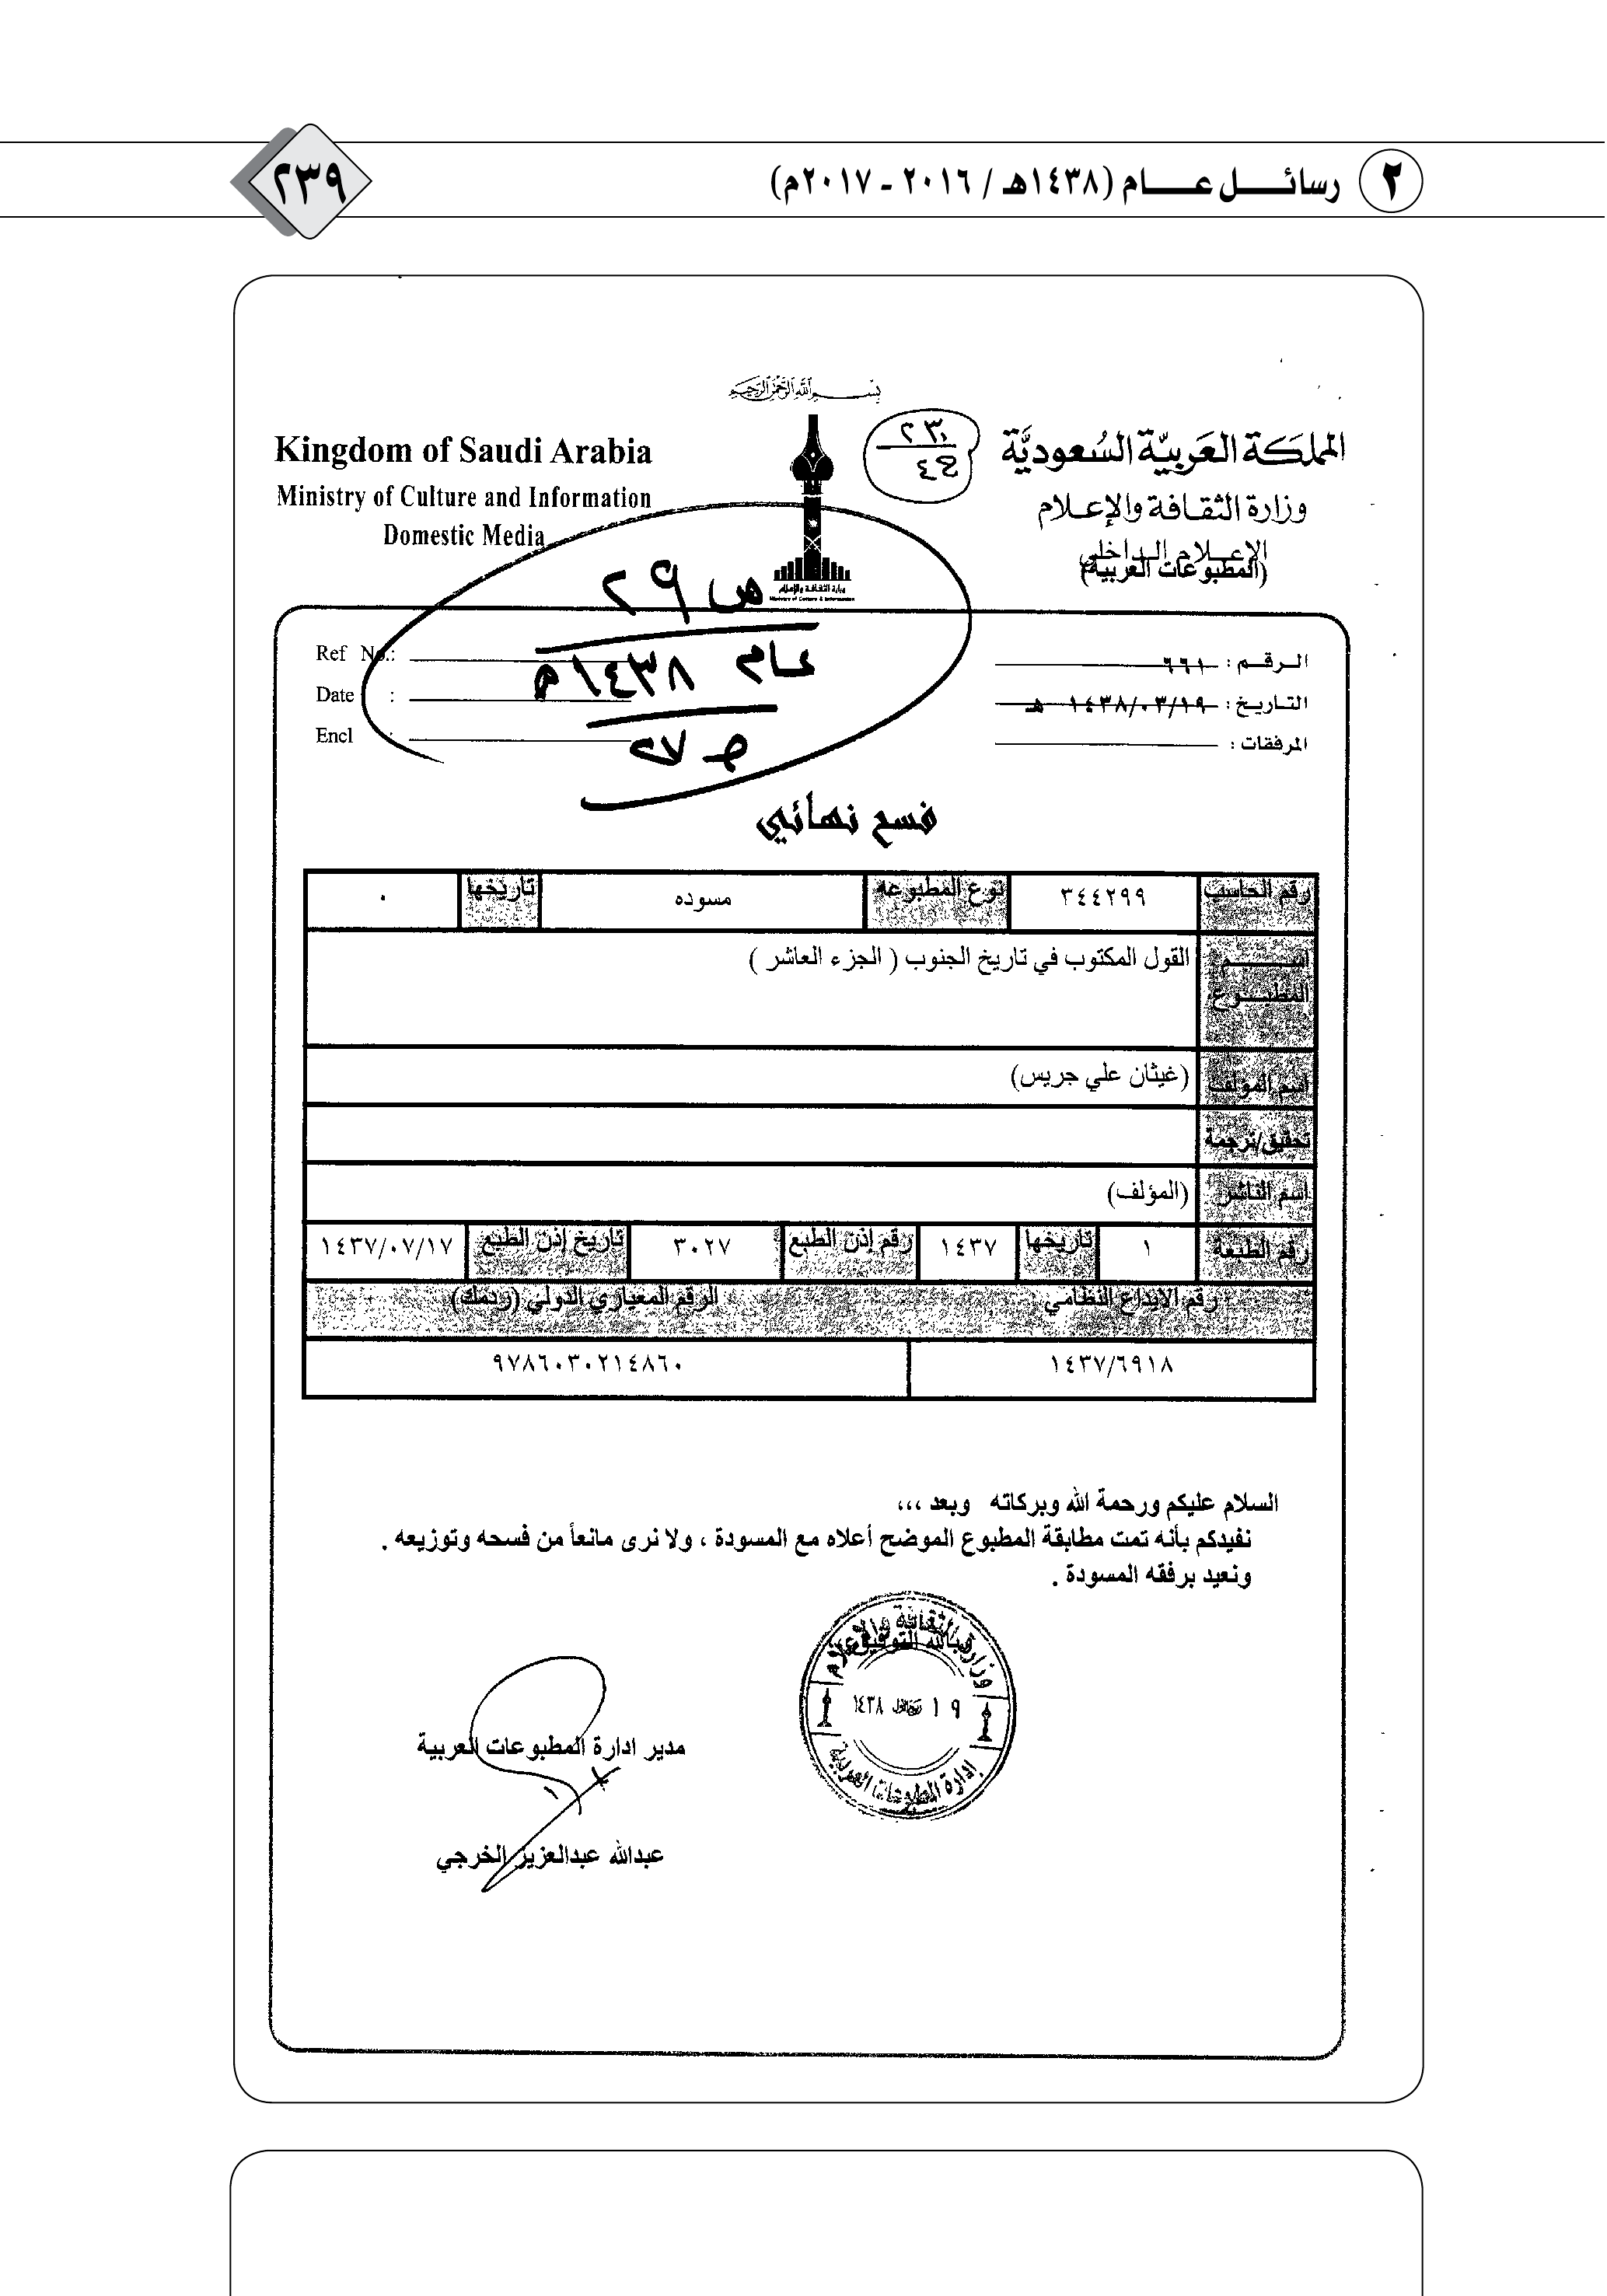 ٢ رسائل عام (١٤٣٨هـ / ٢٠١٦ - ٢٠١٧م) ٢٣٩
بسم الله الرحمن الرحيم
المملكة العربية السعودية
وزارة الثقافة والإعلام
الإعلام الداخلي
(المطبوعات العربية)
Kingdom of Saudi Arabia
Ministry of Culture and Information
Domestic Media
وزارة الثقافة والإعلام
Ministry of Culture & Information
ص ٢٩
عام ١٤٣٨هـ
الرقم : ٦٦١
التاريخ : ١٤٣٨/٠٣/١٩ هـ
المرفقات :
Ref No.:
Date :
Encl :
فسح نهائي
رقم الحاسب ٣٤٤٢٩٩ نوع المطبوعه مسوده تاريخها ٠
اسم المطبوع القول المكتوب في تاريخ الجنوب ( الجزء العاشر )
اسم المؤلف (غيثان علي جريس)
تحقيق/ترجمة
اسم الناشر (المؤلف)
رقم الطبعة ١ تاريخها ١٤٣٧ رقم إذن الطبع ٣٠٢٧ تاريخ إذن الطبع ١٤٣٧/٠٧/١٧
رقم الايداع النظامي الرقم المعياري الدولي (ردمك)
١٤٣٧/٦٩١٨ ٩٧٨٦٠٣٠٢١٤٨٦٠
السلام عليكم ورحمة الله وبركاته وبعد ،،،
نفيدكم بأنه تمت مطابقة المطبوع الموضح أعلاه مع المسودة ، ولا نرى مانعاً من فسحه وتوزيعه .
ونعيد برفقه المسودة .
وبالله التوفيق
وزارة الثقافة والإعلام
١٩ ربيع الأول ١٤٣٨
إدارة المطبوعات العربية
مدير ادارة المطبوعات العربية
عبدالله عبدالعزيز الخرجي